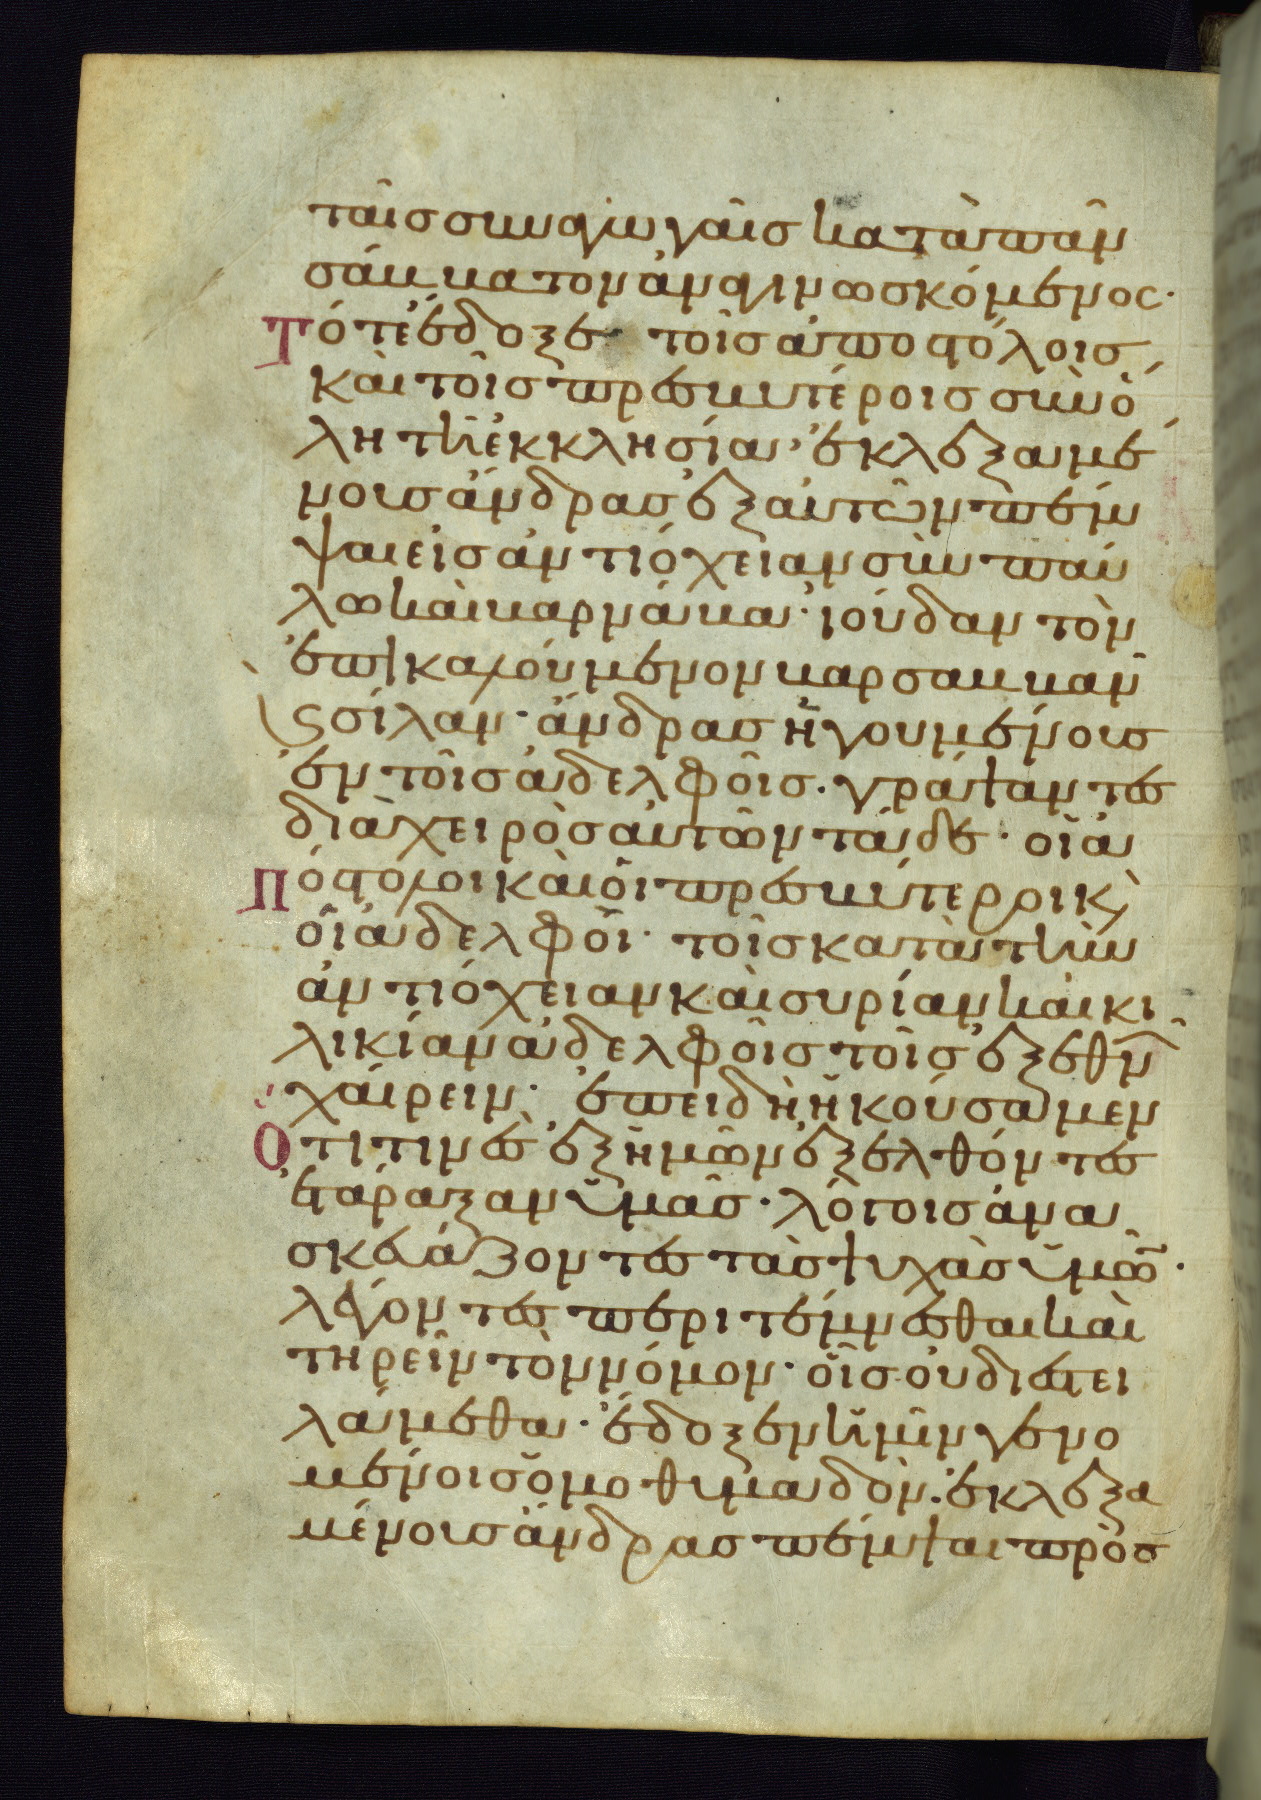 ταῖς συναγωγαῖς κατὰ πᾶν
σάββατον ἀναγινωσκόμενος·
Τότε ἔδοξε τοῖς ἀποστόλοις
καὶ τοῖς πρεσβυτέροις σὺν ὅ
λη τῆ ἐκκλησία· ἐκλεξαμέ
νοις ἄνδρας ἐξ αὐτῶν πέμ
ψαι εἰς ἀντιόχειαν σὺν παύ
λω καὶ βαρνάβα· ἰούδαν τὸν
ἐπικαλούμενον βαρσαββᾶν
ϛ σίλαν· ἄνδρας ἡγουμένους
ἐν τοῖς ἀδελφοῖς. γράψαντες
διὰ χειρὸς αὐτῶν τάδε· οἱ ἀ
Πόστολοι καὶ οἱ πρεσβύτεροι κ
οἱ ἀδελφοὶ· τοῖς κατὰ τὴν
ἀντιόχειαν καὶ συρίαν καὶ κι
λικίαν ἀδελφοῖς τοῖς ἐξ ἐθν
χαίρειν· ἐπειδὴ ἠκούσαμεν
Ὅτι τινὲς ἐξ ἡμῶν ἐξελθόντες
ἐτάραξαν ὑμᾶς· λόγοις ἀνα
σκευάζοντες τὰς ψυχὰς ὑμῶ·
λέγοντες περιτέμνεσθαι καὶ
τηρεῖν τὸν νόμον· οἷς οὐ διεστει
λάμεθα· ἔδοξεν ἡμῖν γενο
μένοις ὁμοθυμαδὸν· ἐκλεξα
μένους ἄνδρας πέμψαι πρὸς